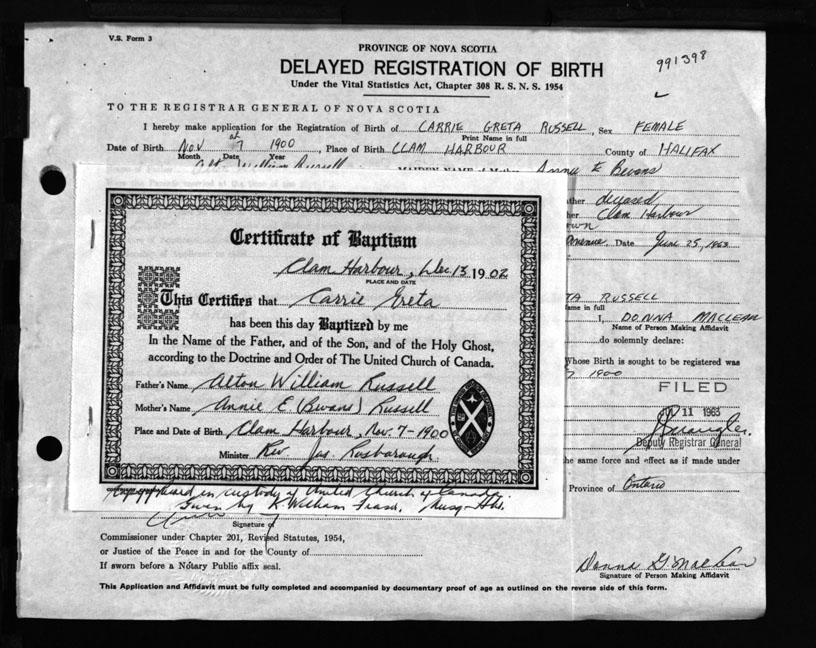 V.S. Form 3
PROVINCE OF NOVA SCOTIA
991398
DELAYED REGISTRATION OF BIRTH
Under the Vital Statistics Act, Chapter 308 R. S. N. S. 1954
TO THE REGISTRAR GENERAL OF NOVA SCOTIA
I hereby make application for the Registration of Birth of CARRIE GRETA RUSSELL, Sex FEMALE
Print Name in full
Date of Birth Nov 7 1900, Place of Birth CLAM HARBOUR County of HALIFAX
Month Date Year
William Russell MAIDEN NAME of Mother Annie E Bevans
deceased
Clam Harbour
Date June 25, 1963
Certificate of Baptism
Clam Harbour, Dec. 13 1902
PLACE AND DATE
This Certifies that Carrie Greta
has been this day Baptized by me
In the Name of the Father, and of the Son, and of the Holy Ghost,
according to the Doctrine and Order of The United Church of Canada.
Father's Name Alton William Russell
Mother's Name Annie E (Bevans) Russell
Place and Date of Birth Clam Harbour, Nov. 7-1900
Minister Rev. Jas. Rosborough
in custody of United Church of Canada.
by K. William Fraser,
TA RUSSELL
ame in full
I, DONNA MACLEAN
Name of Person Making Affidavit
do solemnly declare:
Whose Birth is sought to be registered was
7 1900
FILED
11 1963
Deputy Registrar General
he same force and effect as if made under
Province of Ontario
Signature of
Commissioner under Chapter 201, Revised Statutes, 1954,
or Justice of the Peace in and for the County of
If sworn before a Notary Public affix seal.
Donna G. MacLean
Signature of Person Making Affidavit
This Application and Affidavit must be fully completed and accompanied by documentary proof of age as outlined on the reverse side of this form.